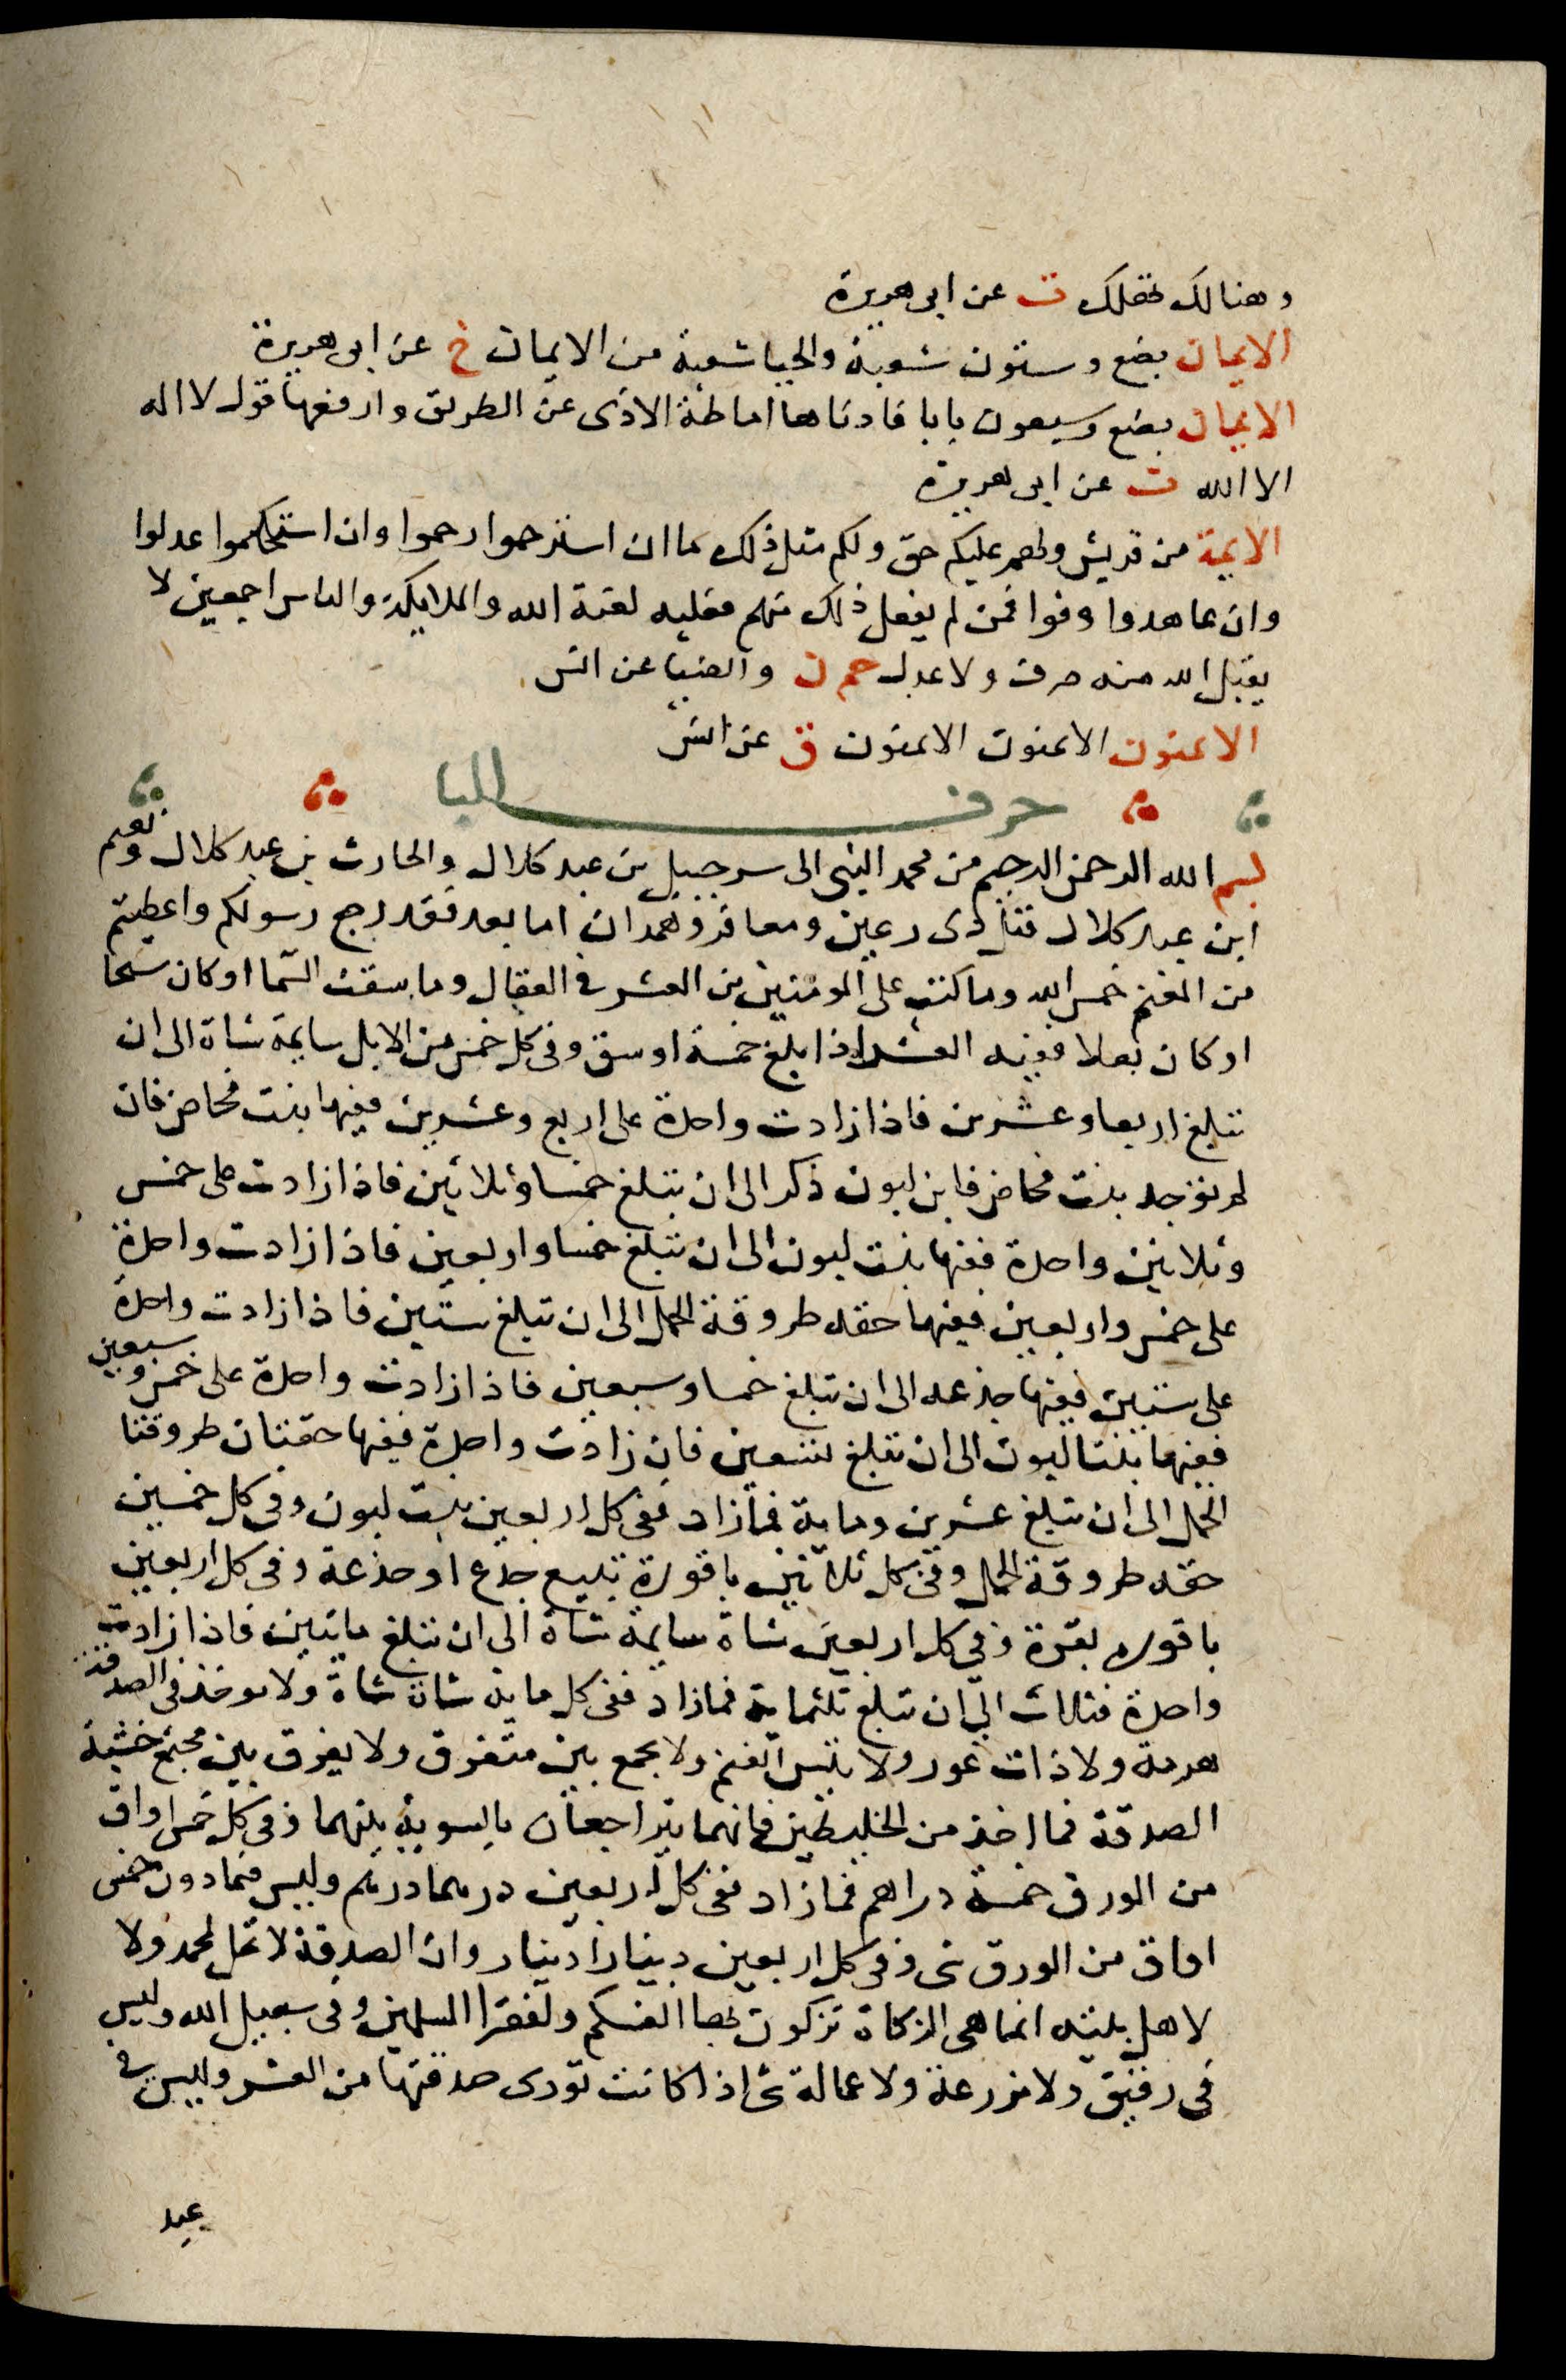 وهنالك تقلك ت عن ابى هريرة
الايمان بضع وستون شعبة والحيا شعبة من الايمان خ عن ابى هريرة
الايمان بضع وسبعون بابا فادناها اماطة الاذى عن الطريق وارفعها قول لا اله
الا الله ت عن ابى هريرة
الايمة من قريش ولهم عليكم حق ولكم مثل ذلك ما ان استرحموا رحموا وان استحكموا عدلوا
وان عاهدوا وفوا فمن لم يفعل ذلك منهم فعليه لعنة الله والملايكة والناس اجمعين لا
يقبل الله منه صرف ولا عدل حم ن والضيا عن انس
الايمنون الايمنون الايمنون ق عن انس
حرف البا
بسم الله الرحمن الرحيم من محمد النبى الى سرحبيل بن عبد كلال والحارث بن عبد كلال ونعيم
ابن عبد كلال قيل ذى رعين ومعافر وهمدان اما بعد فقد رجع رسولكم واعطيتم
من المغنم خمس الله وما كتب على المومنين من العشر فى العقار وما سقت السما او كان سحا
او كان بعلا ففيه العشر اذا بلغ خمسة اوسق وفى كل خمس من الابل سايمة شاة الى ان
تبلغ اربعا وعشرين فاذا زادت واحدة على اربع وعشرين ففيها بنت مخاض فان
لم توجد بنت مخاض فابن لبون ذكر الى ان تبلغ خمسا وثلاثين فاذا زادت على خمس
وثلاثين واحدة ففيها بنت لبون الى ان تبلغ خمسا واربعين فاذا زادت واحدة
على خمس واربعين ففيها حقه طروقة الجمل الى ان تبلغ ستين فاذا زادت واحدة
على ستين ففيها جذعه الى ان تبلغ خمسا وسبعين فاذا زادت واحدة على خمس وسبعين
ففيها بنتا لبون الى ان تبلغ تسعين فان زادت واحدة ففيها حقتان طروقتا
الجمل الى ان تبلغ عشرين وماية فما زاد ففى كل اربعين بنت لبون وفى كل خمسين
حقه طروقة الجمل وفى كل ثلاثين باقورة تبيع جذع او جذعة وفى كل اربعين
باقوره بقرة وفى كل اربعين شاة سايمة شاة الى ان تبلغ مايتين فاذا زادت
واحدة فثلاث الى ان تبلغ ثلثماية فما زاد ففى كل ماية شاة شاة ولا يوخذ فى الصدقة
هرمة ولا ذات عور ولا تيس الغنم ولا يجمع بين متفرق ولا يفرق بين مجتمع خشية
الصدقة فما اخذ من الخليطين فانهما يتراجعان بالسوية بينهما وفى كل خمس اواق
من الورق خمسة دراهم فما زاد ففى كل اربعين درهما درهم وليس فيما دون خمس
اواق من الورق شى وفى كل اربعين دينارا دينار وان الصدقة لا تحل لمحمد ولا
لاهل بيته انما هى الزكاة تزكون بها انفسكم ولفقرا المسلمين وفى سبيل الله وليس
فى رقيق ولا مزرعة ولا عمالة شى اذا كانت تودى صدقتها من العشر وليس فى
عبد